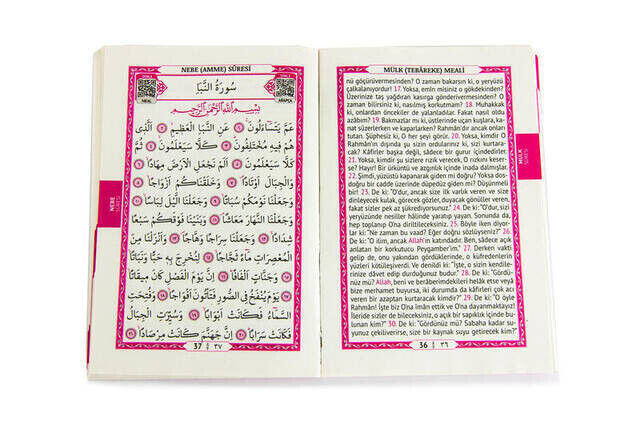 MÜLK (TEBÂREKE) MEALİ
nü göçürüvermesinden? O zaman bakarsın ki, o yeryüzü
çalkalanıyordur! 17. Yoksa, emin misiniz o gökdekinden?
Üzerinize taş yağdıran kasırga göndermesinden? O
zaman bilirsiniz ki, nasılmış korkutmam? 18. Muhakkak
ki, onlardan öncekiler de yalanladılar. Fakat nasıl oldu
azâbım? 19. Bakmazlar mı ki, üstlerinde uçan kuşlara, ka-
nat süzerlerken ve kaparlarken? Rahmân'dır ancak onları
tutan. Şüphesiz ki, O her şeyi görür. 20. Yoksa, kimdir O
Rahmân'ın dışında şu sizin ordularınız ki, sizi kurtara-
cak? Kâfirler başka değil, sâdece bir gurur içindedirler.
21. Yoksa, kimdir şu sizlere rızık verecek, O rızkını keser-
se? Hayır! Bir ürküntü ve azgınlık içinde inada dalmışlar.
22. Şimdi, yüzüstü kapanarak giden mi doğru? Yoksa dos-
doğru bir cadde üzerinde düpedüz giden mi? Düşünmeli
bir! 23. De ki: "O'dur, ancak size ilk varlık veren ve size
dinleyecek kulak, görecek gözler, duyacak gönüller veren,
fakat sizler pek az şükrediyorsunuz." 24. De ki: "O'dur, sizi
yeryüzünde nesiller hâlinde yaratıp yayan. Sonunda da,
hep toplanıp O'na dirilltileceksiniz. 25. Böyle iken diyor-
lar ki: "Ne zaman bu vaad? Eğer doğru söylüyorseniz?" 26.
De ki: "O ilim, ancak Allah'ın katındadır. Ben, sâdece açık
anlatan bir korkutucu Peygamber'im." 27. Derken vakti
gelip de, onu yakından gördüklerinde, o küfredenlerin
yüzleri kötüleşiverdi. Ve denildi ki: "İşte, o sizin kendile-
rinizce dâvet edip durduğunuz budur." 28. De ki: "Gördü-
nüz mü? Allah, beni ve berâberimdekileri helâk etse veyâ
bize merhamet buyursa, iki durumda da kâfirleri çok acı
veren bir azaptan kurtaracak kimdir? 29. De ki: "O öyle
Rahmân! İşte biz O'na îmân ettik ve O'na dayanmaktayız!
İleride sizler de bileceksiniz, o açık bir sapıklık içinde bu-
lunan kim?" 30. De ki: "Gördünüz mü? Sabaha kadar su-
yunuz çekiliverirse, size bir kaynak suyu getirecek kim?"
MÜLK
SÛRESİ
36 ٣٦
NEBE (AMME) SÛRESİ
MEAL
سُورَةُ النَّبَأِ
ARAPÇA
بِسْمِ اللّٰهِ الرَّحْمٰنِ الرَّحِيمِ
عَمَّ يَتَسَٓاءَلُونَۚ ﴿١﴾ عَنِ النَّبَأِ الْعَظِيمِۙ ﴿٢﴾ اَلَّذِي
هُمْ فِيهِ مُخْتَلِفُونَۜ ﴿٣﴾ كَلَّا سَيَعْلَمُونَۙ ﴿٤﴾ ثُمَّ
كَلَّا سَيَعْلَمُونَ ﴿٥﴾ اَلَمْ نَجْعَلِ الْاَرْضَ مِهَادًاۙ ﴿٦﴾
وَالْجِبَالَ اَوْتَادًاۖ ﴿٧﴾ وَخَلَقْنَاكُمْ اَزْوَاجًاۙ ﴿٨﴾
وَجَعَلْنَا نَوْمَكُمْ سُبَاتًاۙ ﴿٩﴾ وَجَعَلْنَا الَّيْلَ لِبَاسًاۙ ﴿١٠﴾
وَجَعَلْنَا النَّهَارَ مَعَاشًاۖ ﴿١١﴾ وَبَنَيْنَا فَوْقَكُمْ سَبْعًا
شِدَادًاۙ ﴿١٢﴾ وَجَعَلْنَا سِرَاجًا وَهَّاجًاۖ ﴿١٣﴾ وَاَنْزَلْنَا مِنَ
الْمُعْصِرَاتِ مَٓاءً ثَجَّاجًاۙ ﴿١٤﴾ لِنُخْرِجَ بِهِ حَبًّا وَنَبَاتًاۙ
﴿١٥﴾ وَجَنَّاتٍ اَلْفَافًاۜ ﴿١٦﴾ اِنَّ يَوْمَ الْفَصْلِ كَانَ مِيقَاتًاۙ
﴿١٧﴾ يَوْمَ يُنْفَخُ فِي الصُّورِ فَتَأْتُونَ اَفْوَاجًاۙ ﴿١٨﴾ وَفُتِحَتِ
السَّمَٓاءُ فَكَانَتْ اَبْوَابًاۙ ﴿١٩﴾ وَسُيِّرَتِ الْجِبَالُ
فَكَانَتْ سَرَابًاۜ ﴿٢٠﴾ اِنَّ جَهَنَّمَ كَانَتْ مِرْصَادًاۙ ﴿٢١﴾
NEBE
SÛRESİ
37 ٣٧